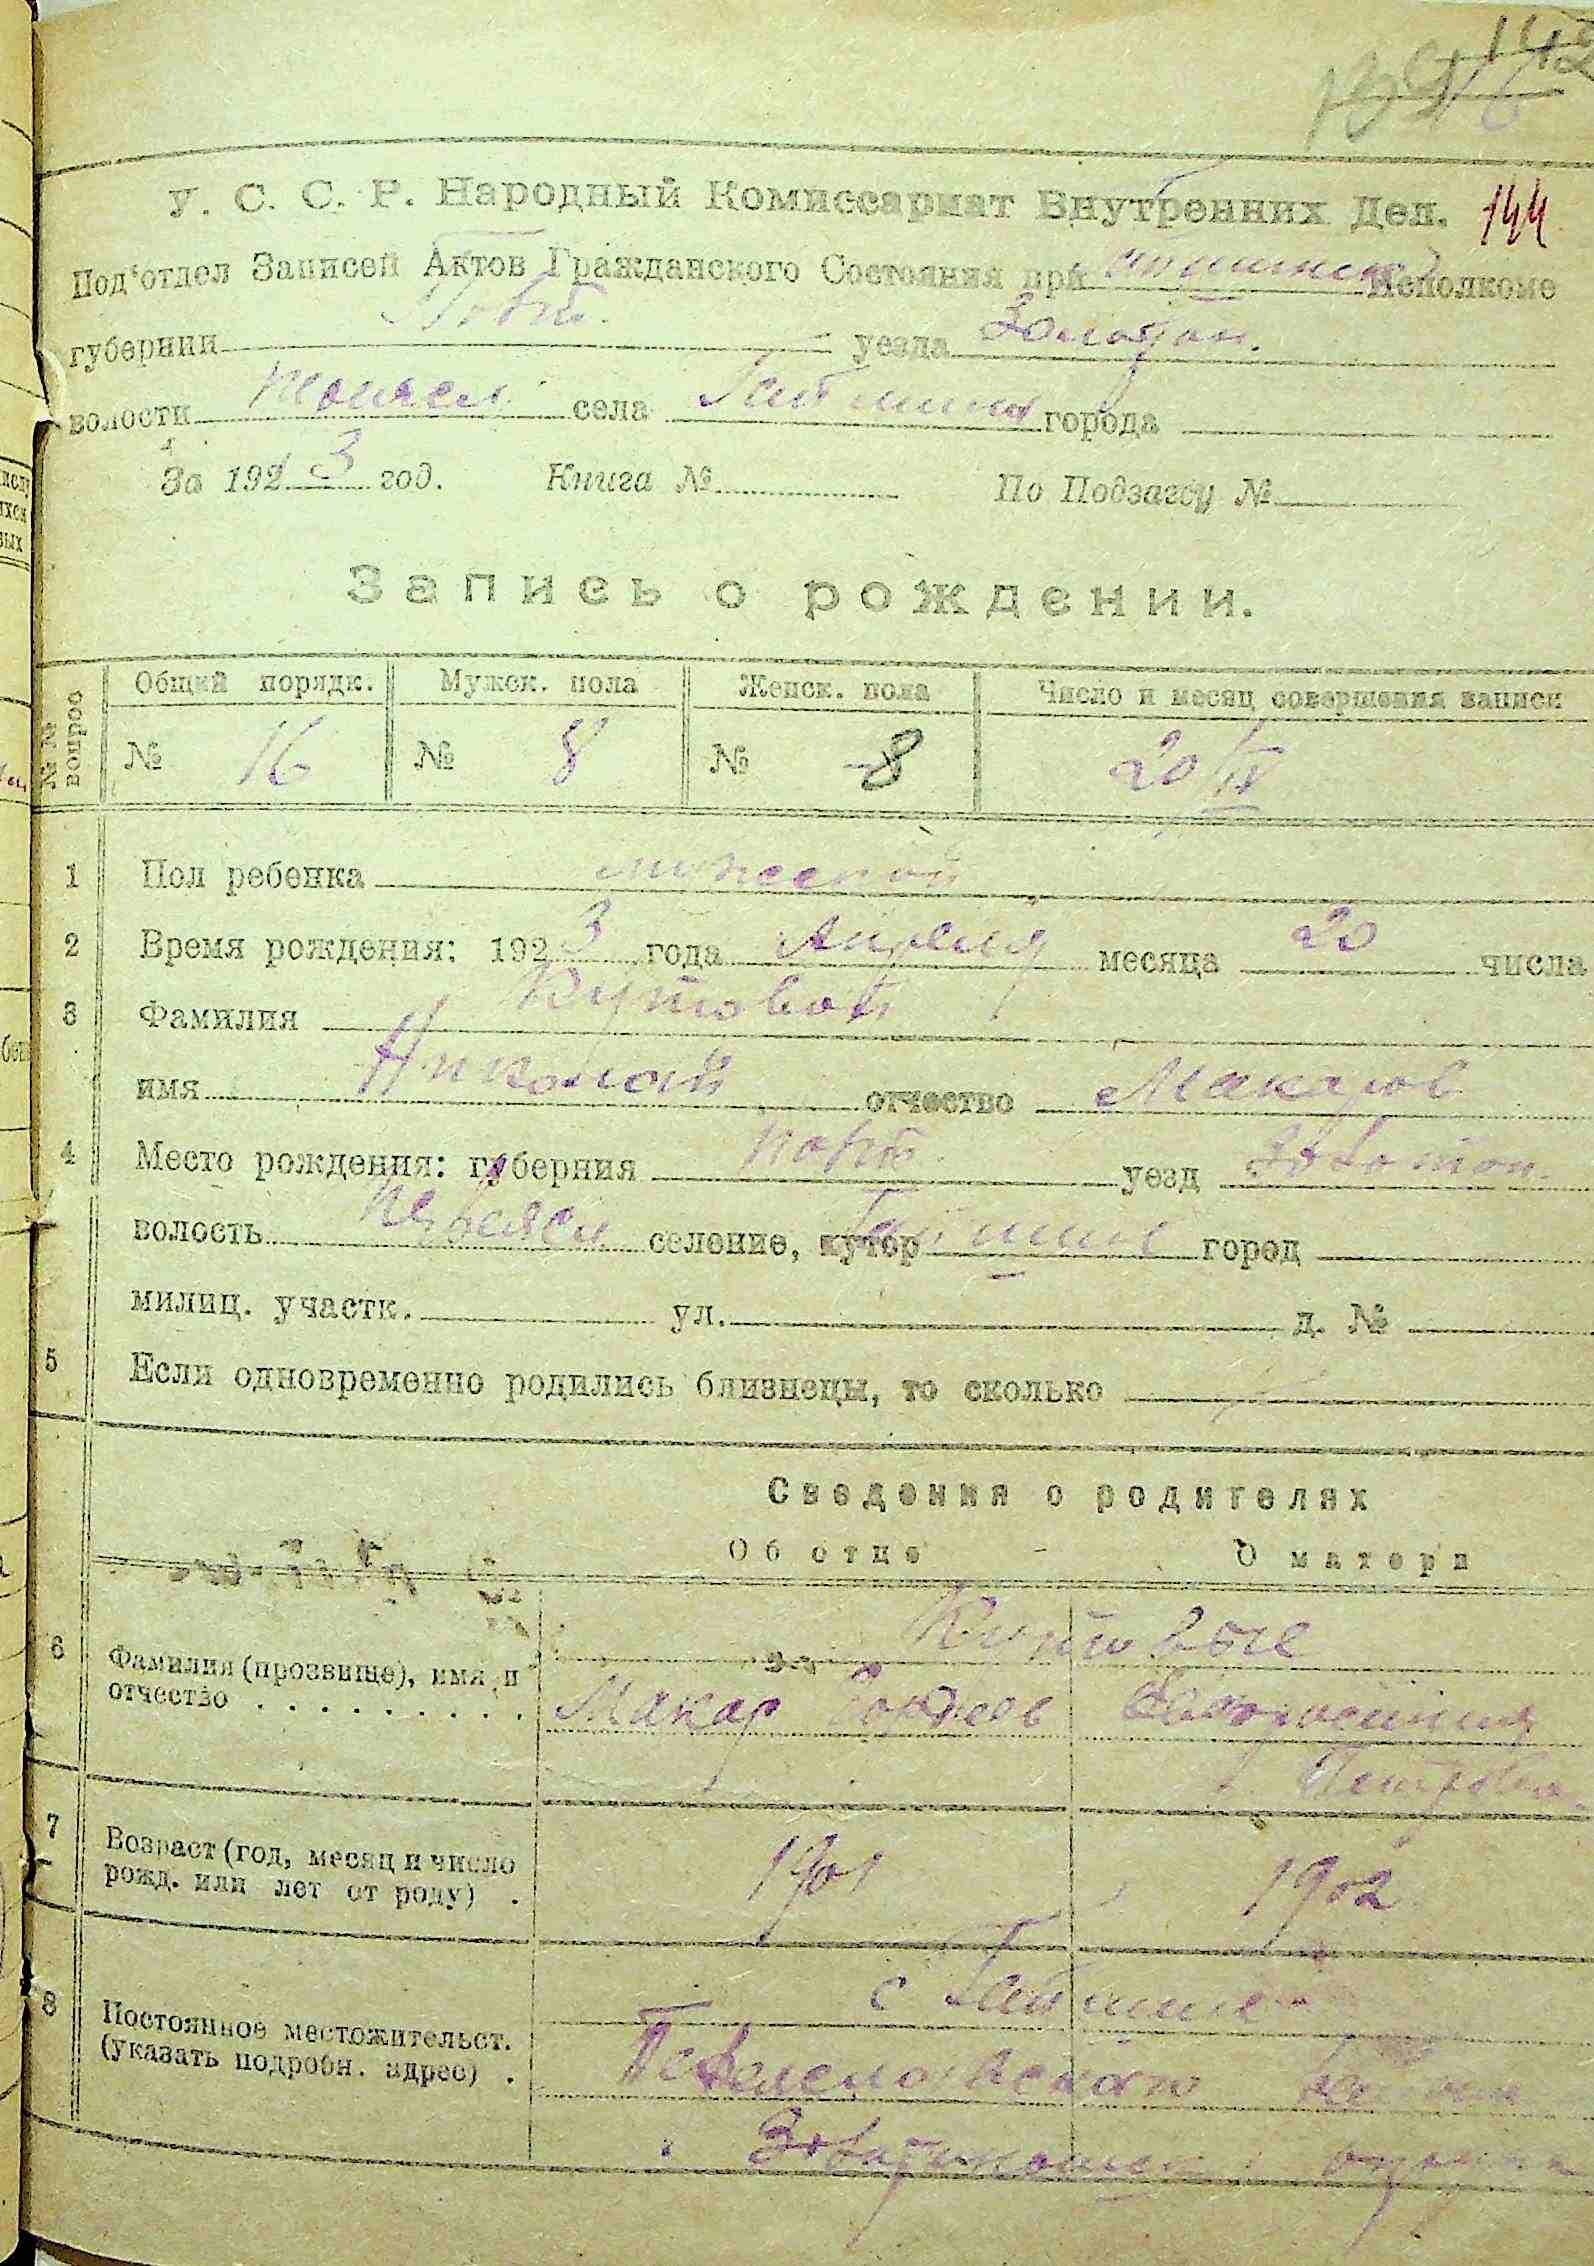 144
У. С. С. Р. Народный Комиссариат Внутренних Дел.
Под'отдел Записей Актов Гражданского Состояния при Исполкоме
губернии Полт. уезда Золотон.
волости села города
За 1923 год. Книга № По Подзагсу №
Запись о рождении.
№№ вопрос
Общий порядк. Мужск. пола Женск. пола Число и месяц совершения записи
№ 16 № 8 № 8 20/IV
1 Пол ребенка мужской
2 Время рождения: 1923 года Апреля месяца 20 числа
3 Фамилия Кутовой
имя Николай отчество Макаров
4 Место рождения: губерния Полт. уезд Золотон.
волость селение, хутор город
милиц. участк. ул. д. №
5 Если одновременно родились близнецы, то сколько
Сведения о родителях
Об отце О матери
6 Фамилия (прозвище), имя и отчество Кутовые
Макар
Петровна
7 Возраст (год, месяц и число рожд. или лет от роду) 1901 1902
8 Постоянное местожительст. (указать подробн. адрес) с